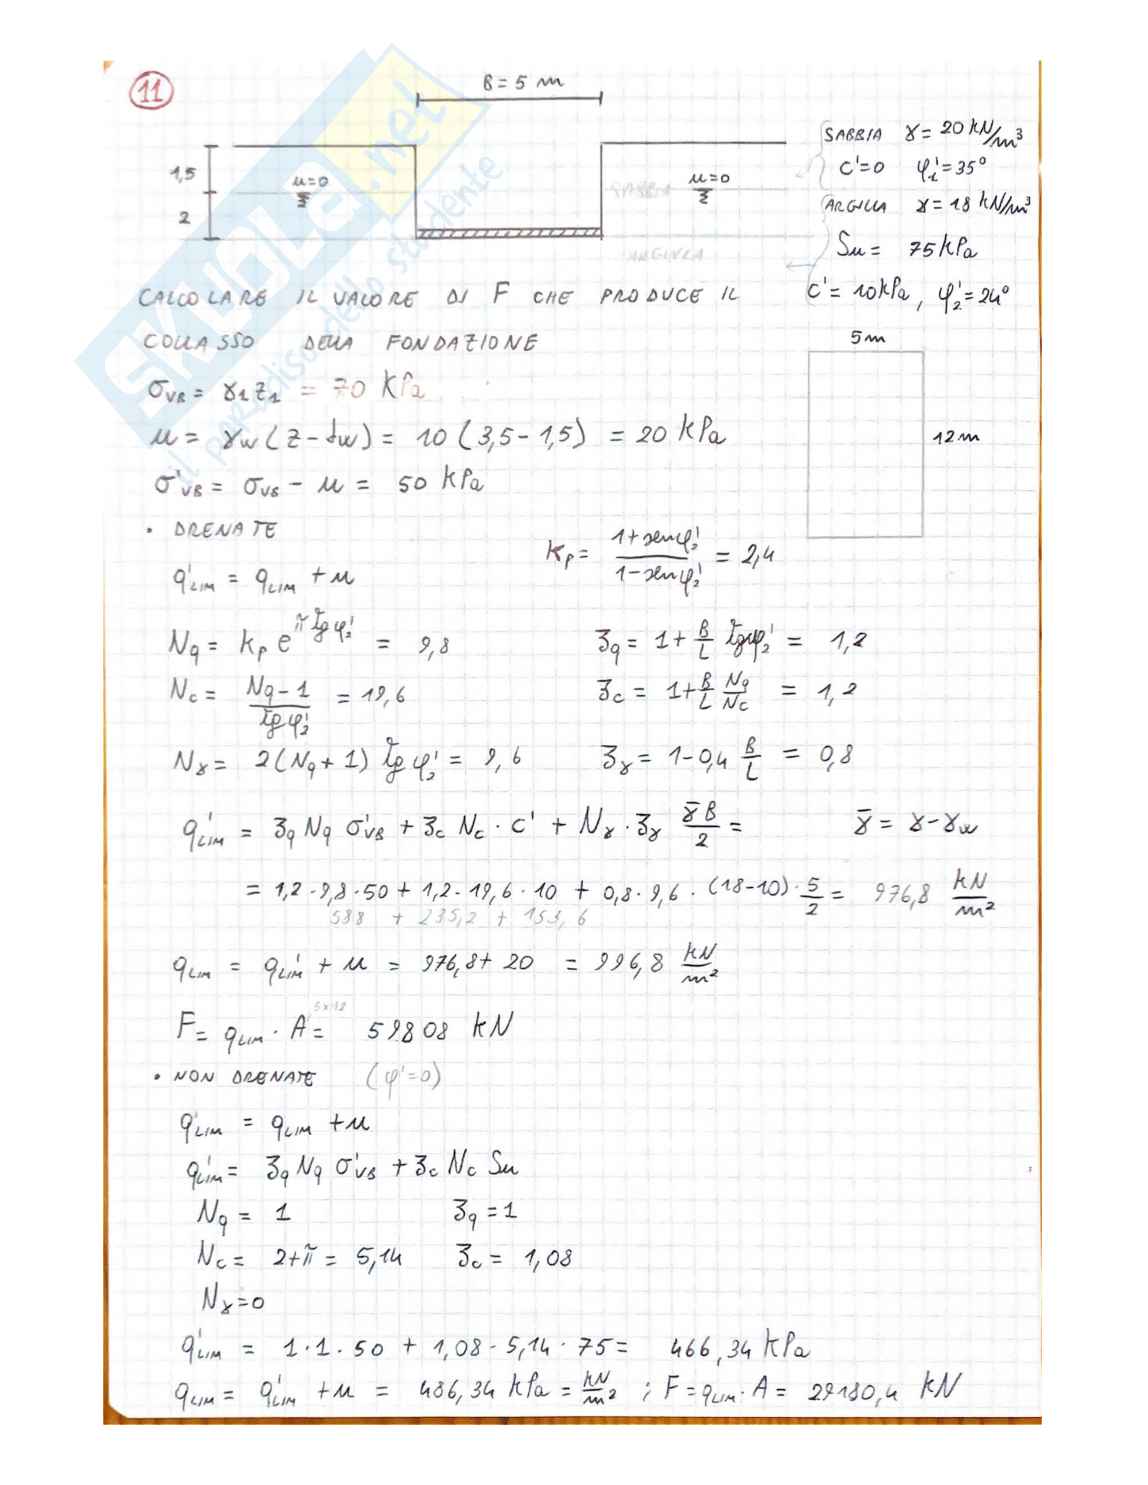 11
B = 5 m
SABBIA γ = 20 kN/m³
1,5
u=0
u=0
c'=0 φ₁'=35°
SABBIA
ARGILLA γ = 18 kN/m³
2
Su = 75 kPa
ARGILLA
c' = 10 kPa, φ₂'=24°
CALCOLARE IL VALORE DI F CHE PRODUCE IL
COLLASSO DELLA FONDAZIONE
5m
σVB = γ1 z1 = 70 kPa
u = γw (z - dw) = 10 (3,5 - 1,5) = 20 kPa
12m
σ'VB = σVB - u = 50 kPa
• DRENATE
kp = (1+senφ₂')/(1-senφ₂') = 2,4
q'LIM = qLIM + u
Nq = kp e^(π tgφ₂') = 9,8 ʒq = 1 + B/L tgφ₂' = 1,2
Nc = (Nq-1)/(tgφ₂') = 19,6 ʒc = 1 + B/L Nq/Nc = 1,2
Nγ = 2(Nq+1) tgφ₂' = 9,6 ʒγ = 1-0,4 B/L = 0,8
q'LIM = ʒq Nq σ'VB + ʒc Nc · c' + Nγ · ʒγ (γ̄ B)/2 = γ̄ = γ-γw
= 1,2 · 9,8 · 50 + 1,2 · 19,6 · 10 + 0,8 · 9,6 · (18-10) · 5/2 = 976,8 kN/m²
588 + 235,2 + 153,6
qLIM = q'LIM + u = 976,8 + 20 = 996,8 kN/m²
5x12
F = qLIM · A = 59808 kN
• NON DRENATE (φ'=0)
q'LIM = qLIM + u
q'LIM = ʒq Nq σ'VB + ʒc Nc Su
Nq = 1 ʒq = 1
Nc = 2+π = 5,14 ʒc = 1,08
Nγ = 0
q'LIM = 1 · 1 · 50 + 1,08 · 5,14 · 75 = 466,34 kPa
qLIM = q'LIM + u = 486,34 kPa = kN/m² ; F = qLIM · A = 29180,4 kN
SKUOLA.net
il paradiso dello studente